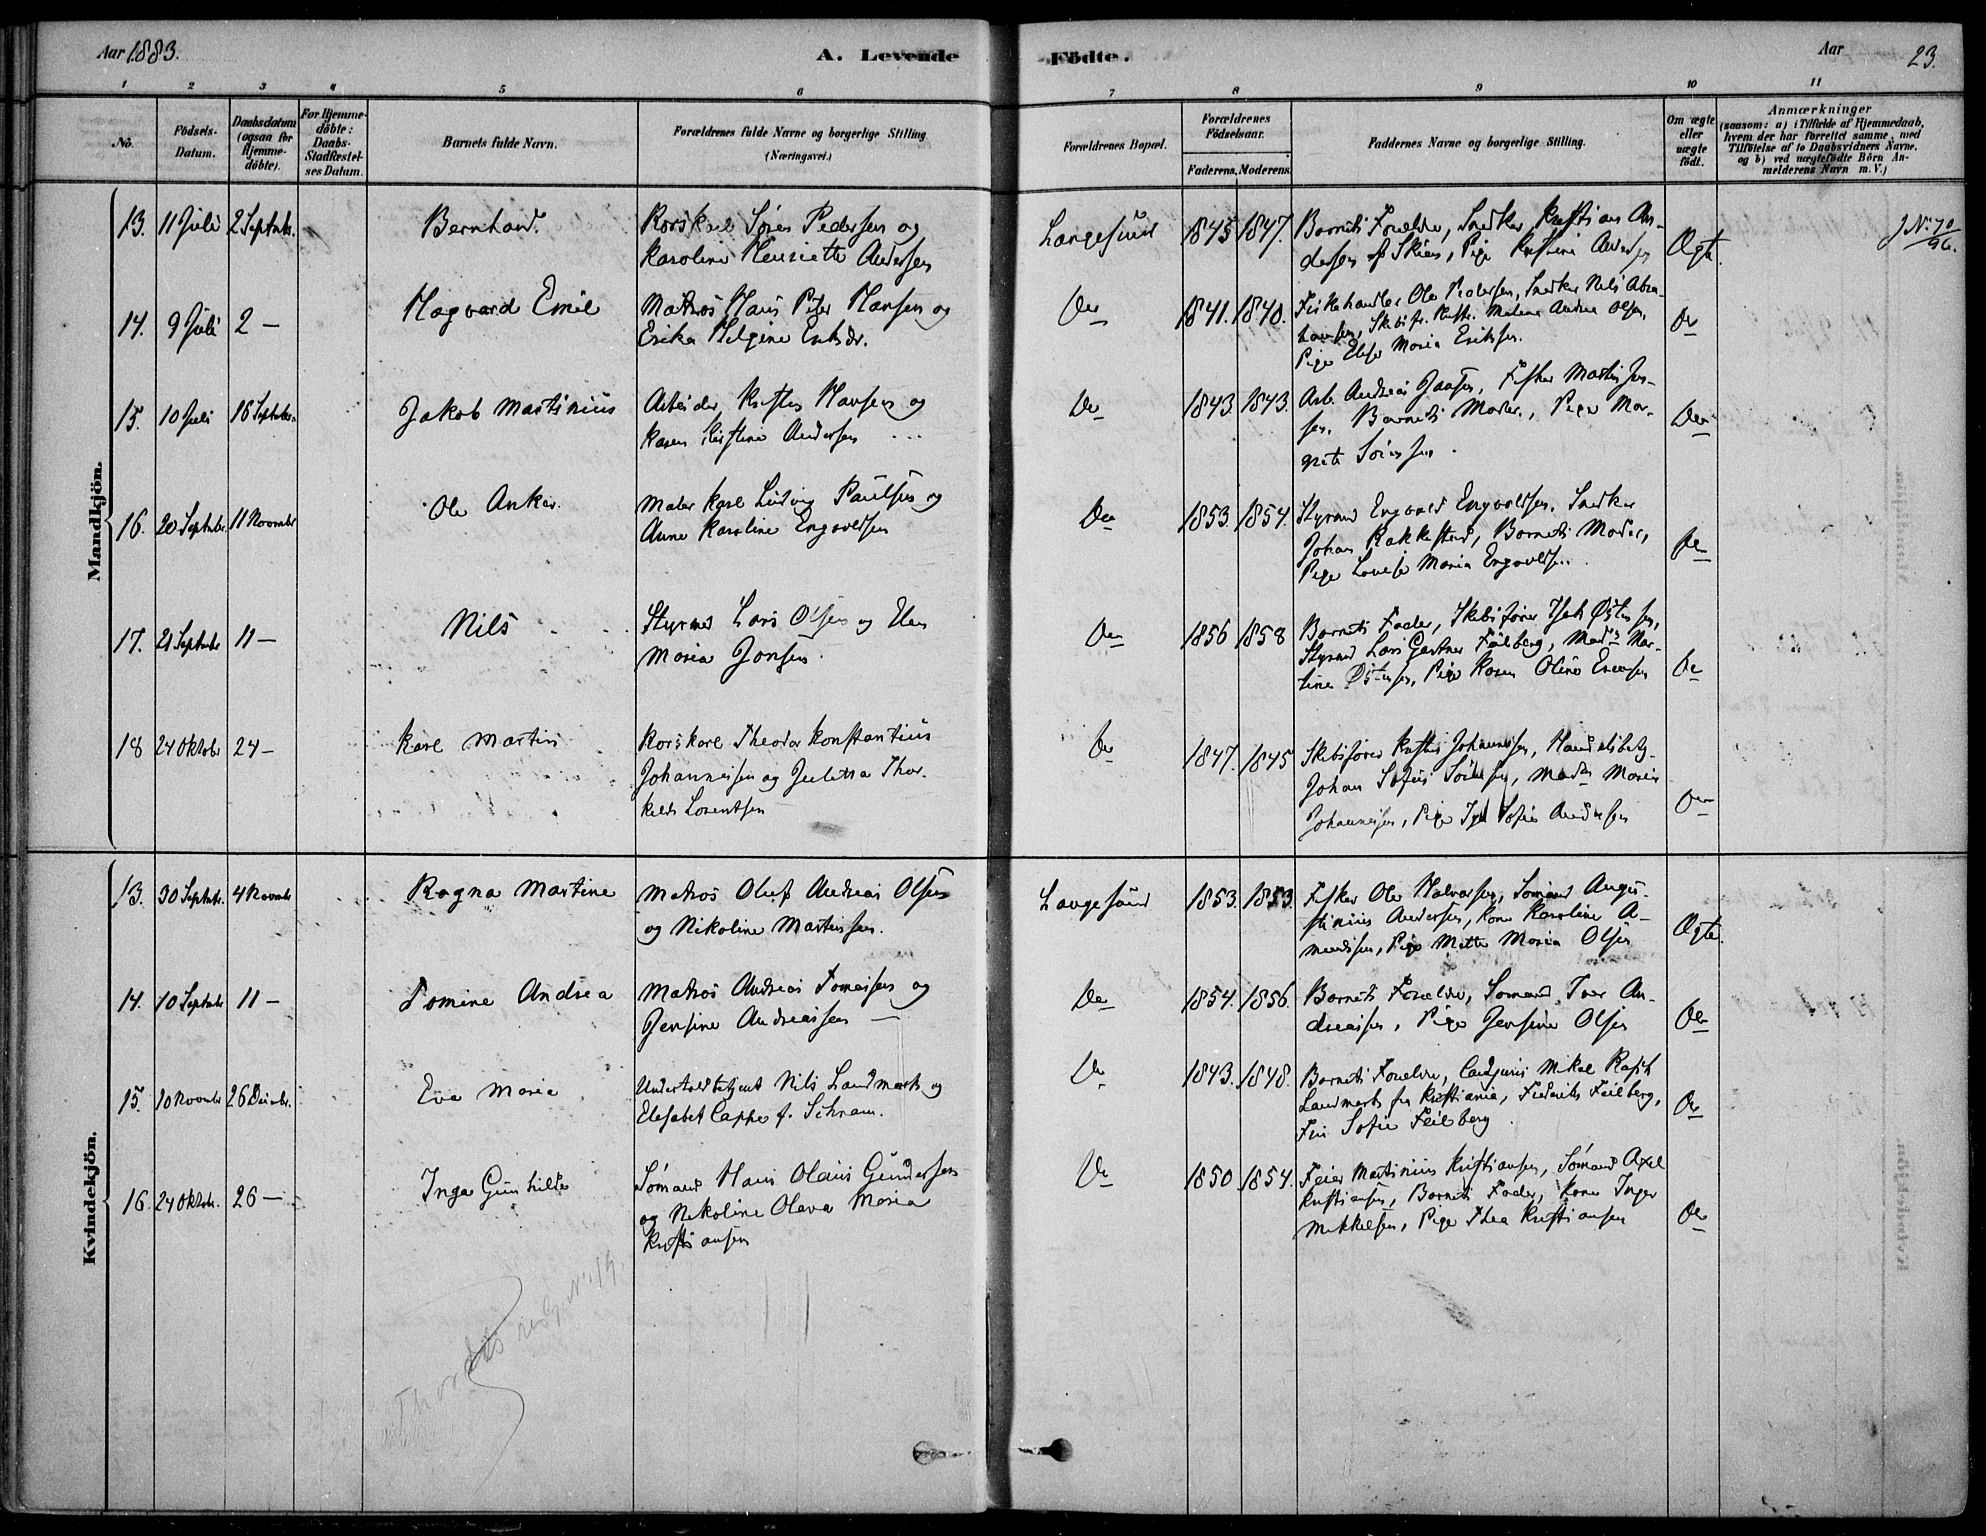 Aar 1883.
A. Levende
Födte.
Aar
23.
1 2 3 4 5 6 7 8 9 10 11
No.
Födsels-
Datum.
Daabsdatum
(ogsaa for
Hjemme-
döbte).
For Hjemme-
döbte:
Daabs-
Stadfæstel-
ses Datum.
Barnets fulde Navn.
Forældrenes fulde Navne og borgerlige Stilling
(Næringsvei.)
Forældrenes Bopæl.
Forældrenes
Födselsaar.
Faderens. Moderens.
Faddernes Navne og borgerlige Stilling.
Om ægte
eller
uægte
födt.
Anmærkninger
(saasom: a) i Tilfælde af Hjemmedaab,
hvem der har forrettet samme, med
Tilföielse af to Daabsvidners Navne.
og b) ved uægtefödte Börn An-
melderens Navn m. V.)
Mandkjön.
13. 11 Juli 2 Septmbr. Bernhard.
Korskarl Søren Pedersen og
Karoline Henriette Andersen
Langesund 1845 1847.
Barnets Forældre, Snedker Kristian An-
dersen af Skien, Pige Kristine Andersen
Ægte.
J N: 70/96.
14. 9 Juli 2 — Hagvard Emil
Matros Hans Peter Hansen og
Erika Helgine Eriksdr.
Do 1841. 1840.
Fiskehandler Ole Pedersen, Snedker Nils Abra-
hamsen, Skibsfr. Kristi. Malene Andrea Olsen,
Pige Elise Maria Eriksen.
Do
15. 10 Juli 16 Septmbr. Jakob Martinius
Arbeider Kristen Hansen og
Karen Kirstine Andersen
Do 1843. 1843.
Arb. Andreas Hansen, Fisker Martin Jen-
sen. Barnets Moder, Pige Mar-
grete Sørensen.
Do
16. 20 Septmbr. 11 Novembr Ole Anker.
Maler Karl Ludvig Paulsen og
Anne Karoline Engvoldsen
Do 1853. 1854.
Styrmd Engvald Engvoldsen, Snedker
Johan Rakkestad, Barnets Moder,
Pige Lovise Maria Engvoldsen.
Do
17. 21 Septmbr 11 — Nils
Styrmd Lars Olsen og Elen
Maria Jonsen.
Do 1856 1858
Barnets Fader, Skibsfører Isak Østensen,
Styrmd Lars Gartner Feilberg, Madm Mar-
tine Østensen, Pige Karen Oline Evensen
Do
18 24 Oktobr 24 — Karl Martin
Korskarl Theodor Konstantius
Johannesen og Julitta Thor-
kelds Lorentsen
Do 1847. 1845
Skibsfører Kristen Johannesen, Handelsbetj.
Johan Sofus Sørensen, Madm Maren
Johannesen, Pige Inga Sofie Andersen
Do
Kvindekjön.
13. 30 Septmbr. 4 Novembr Ragna Martine
Matros Oluf Andreas Olsen
og Nikoline Martinsen.
Langesund 1853. 1853.
Fisker Ole Halvorsen, Sømand Augus-
tinius Andersen, Kone Karoline A-
mundsen, Pige Mette Maria Olsen
Ægte.
14. 10 Septmbr 11 — Tomine Andrea
Matros Andreas Tomessen og
Jensine Andreassen —
Do 1854. 1856.
Barnets Forældre, Sømand Iver An-
dreassen, Pige Jensine Olsen
Do
15. 10 Novembr 26 Decmbr. Eva Maria
Undertoldbetjent Nils Landmark og
Elisabet Cappe f. Schram.
Do 1843. 1848.
Barnets Forældre, Cand juris Mikal Rasch
Landmark fra Kristiania, Frederik Feilberg,
Frü Sofie Feilberg
Do
16. 24 Oktobr. 26 — Inga Gunhilde
Sømand Hans Olaus Gundersen
og Nikoline Olava Maria
Kristiansen
Do 1850. 1854.
Feier Martinius Kristiansen, Sømand Axel
Kristiansen, Barnets Fader, Kone Inger
Mikkelsen, Pige Thea Kristiansen
Do
N: 14.